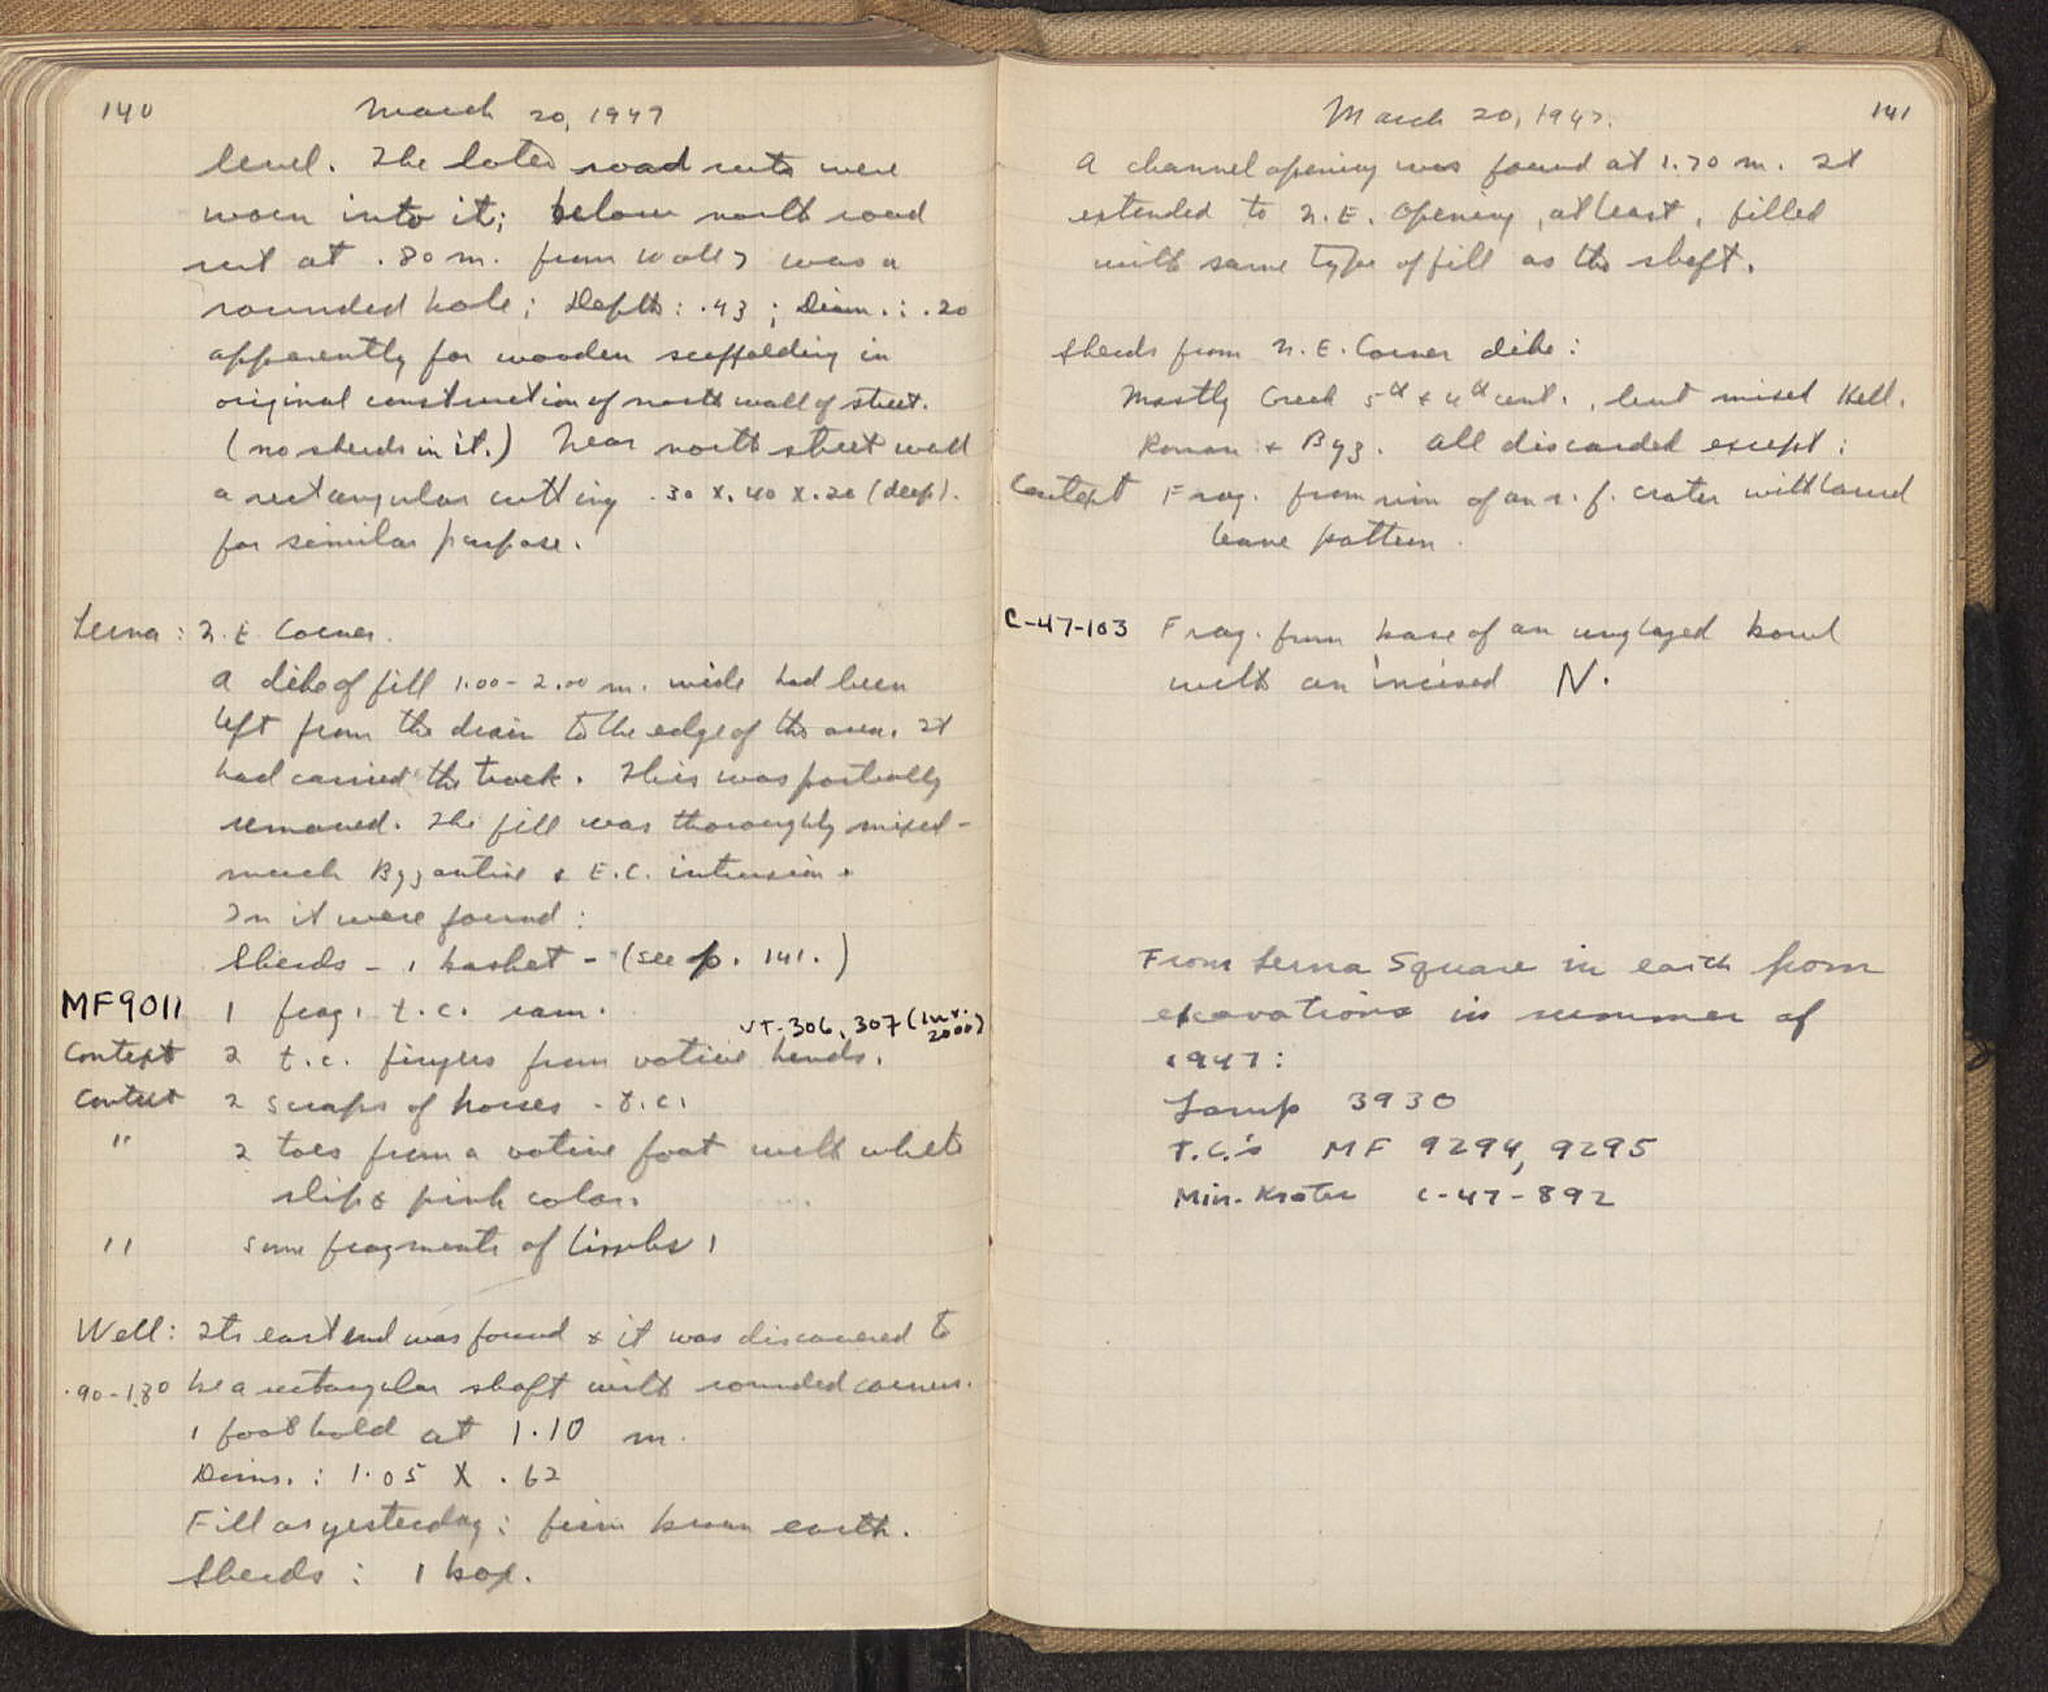 140
March 20, 1947
level. The later road ruts were
worn into it; below north road
rut at .80 m. from wall 7 was a
rounded hole; Depth: .43; Diam.: .20
apparently for wooden scaffolding in
original construction of north wall of street.
(no sherds in it.) Near north street wall
a rectangular cutting .30 x .40 x .20 (deep).
for similar purpose.
Lerna: N.E. Corner.
A dike of fill 1.00 - 2.00 m. wide had been
left from the drain to the edge of the area. It
had carried the track. This was partially
removed. The fill was thoroughly mixed -
much Byzantine & E.C. intrusion.
In it were found:
Sherds - 1 basket - (see p. 141.)
MF9011 1 frag. t.c. ram.
VT-306, 307 (Inv. 2000)
Context 2 t.c. fingers from votive hands.
Context 2 scraps of horses - t.c.
" 2 toes from a votive foot with white
slip & pink color.
" Some fragments of limbs.
Well: Its east end was found & it was discovered to
.90-1.80 be a rectangular shaft with rounded corners.
1 foothold at 1.10 m.
Dims.: 1.05 X .62
Fill as yesterday: firm brown earth.
Sherds: 1 box.
March 20, 1947.
141
A channel opening was found at 1.70 m. It
extended to N.E. opening, at least, filled
with same type of fill as the shaft.
Sherds from N.E. Corner dike:
Mostly Greek 5th & 4th cent., but mixed Hell.
Roman & Byz. All discarded except:
Context Frag. from rim of an r.f. crater with laurel
leave pattern.
C-47-103 Frag. from base of an unglazed bowl
with an incised N.
From Lerna Square in earth from
excavations in summer of
1947:
Lamp 3930
T.C.'s MF 9294, 9295
Min. Krater C-47-892